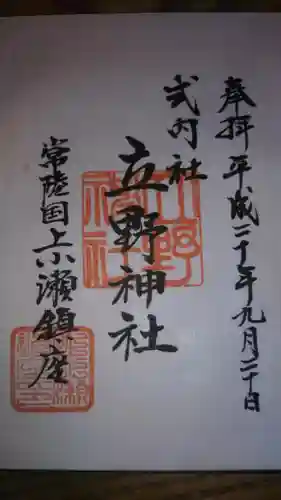 奉拝 平成二十年九月二十日
式内社
立野神社
常陸国上小瀬鎮座